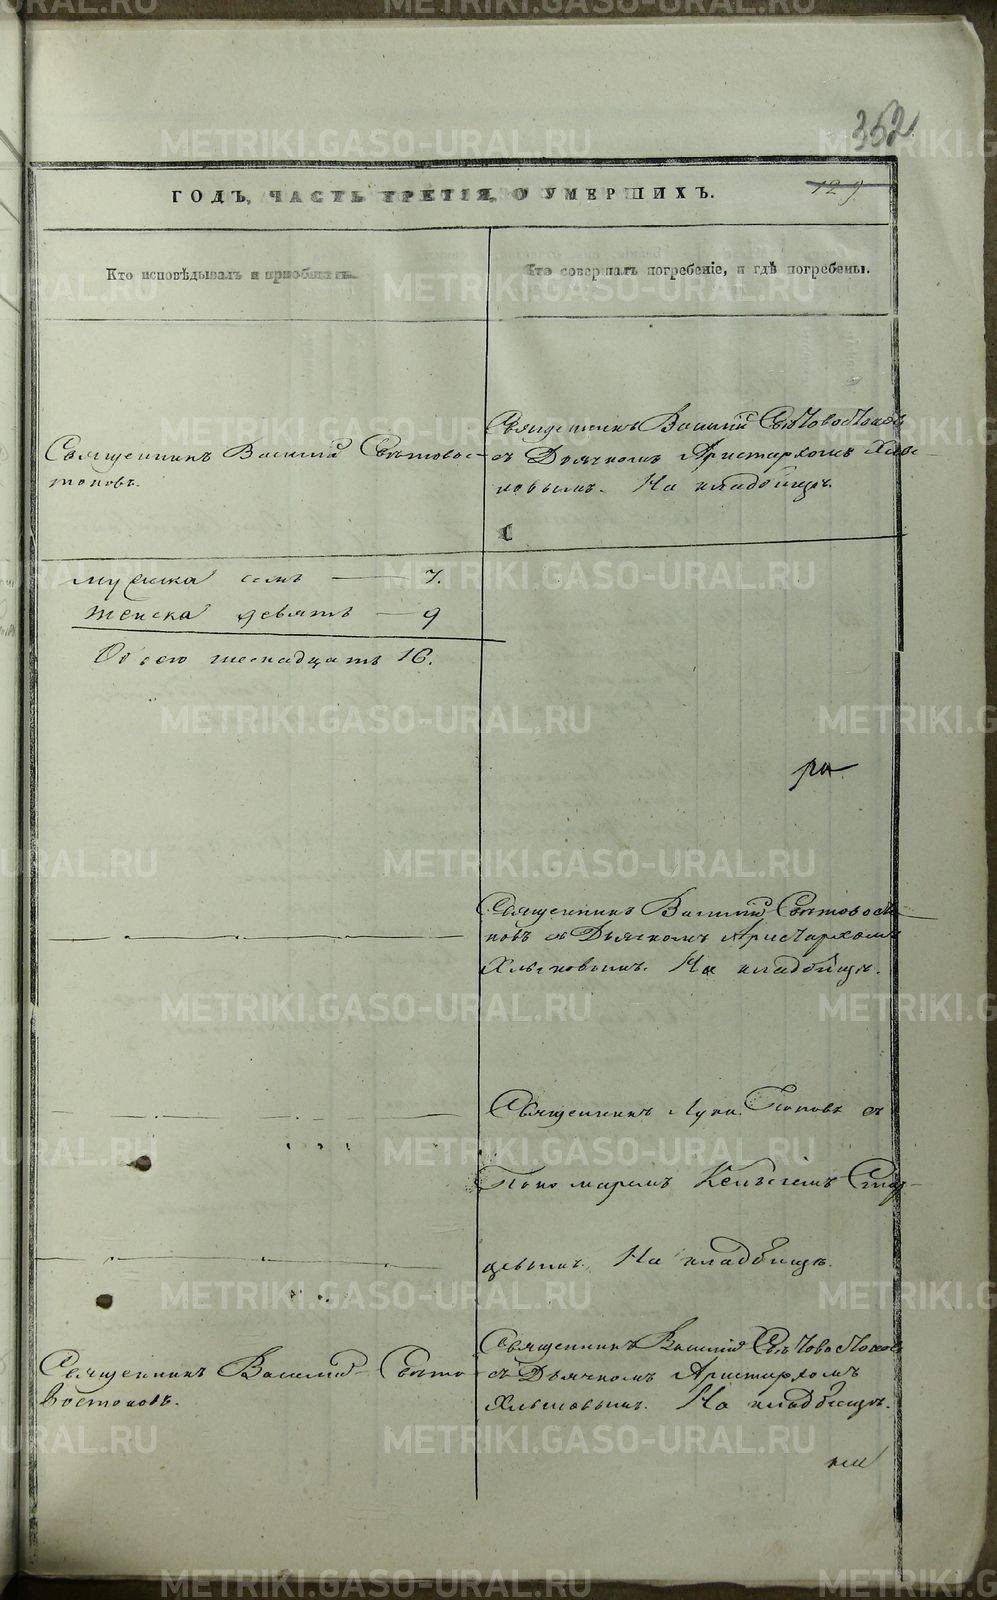 352
129.
ГОДЪ, ЧАСТЬ ТРЕТІЯ, О УМЕРШИХЪ.
Кто исповѣдывалъ и пріобщалъ.
Кто совершалъ погребеніе, и гдѣ погребены.
Священникъ Василій Свѣтовос-
токовъ.
Священникъ Василій Свѣтовостоковъ
съ Дьячкомъ Аристархомъ
На кладбищѣ.
мужеска семь — 7.
женска девять — 9
Обоего шеснадцать 16.
Священникъ Василій Свѣтовосто-
ковъ съ Дьячкомъ Аристархомъ
На кладбищѣ.
Священникъ Лука Поповъ съ
Пономаремъ
На кладбищѣ.
Священникъ Василій Свѣто-
востоковъ.
Священникъ Василій Свѣтовостоковъ
съ Дьячкомъ Аристархомъ
На кладбищѣ.
METRIKI.GASO-URAL.RU